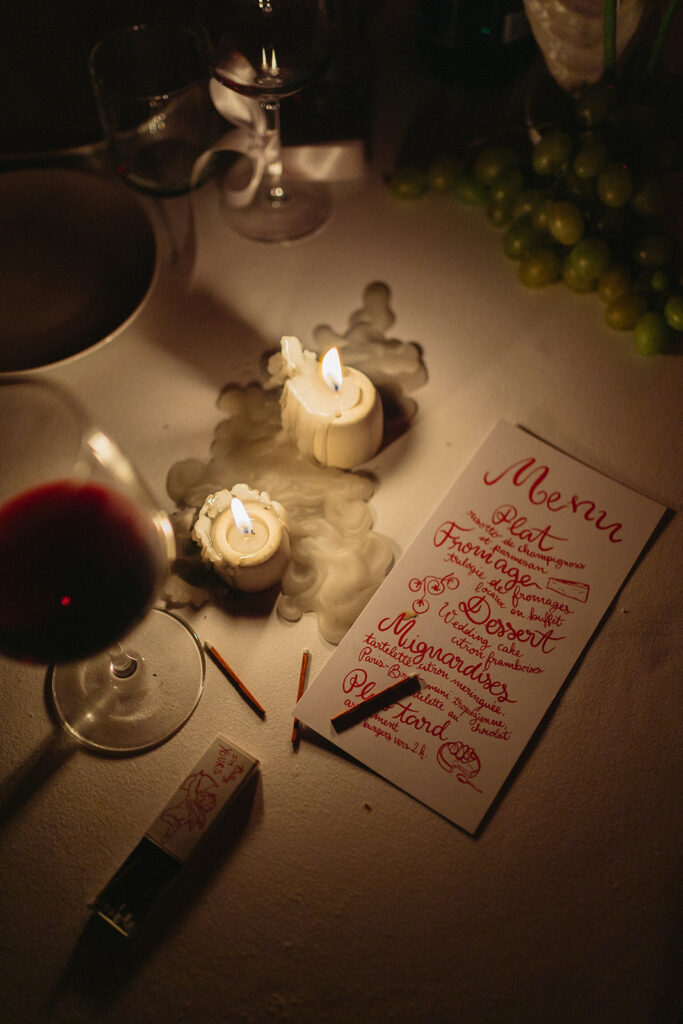 Menu
Plat
risotto de champignons
et parmesan
Fromage
trilogie de fromages
locaux en buffet
Dessert
Wedding cake
citron framboise
Mignardises
tartelette citron meringuée,
Paris-Br mini tropézienne,
telette au chocolat
Pl tard
ment
burgers vers 2h.
Baby
I'm
YOURS